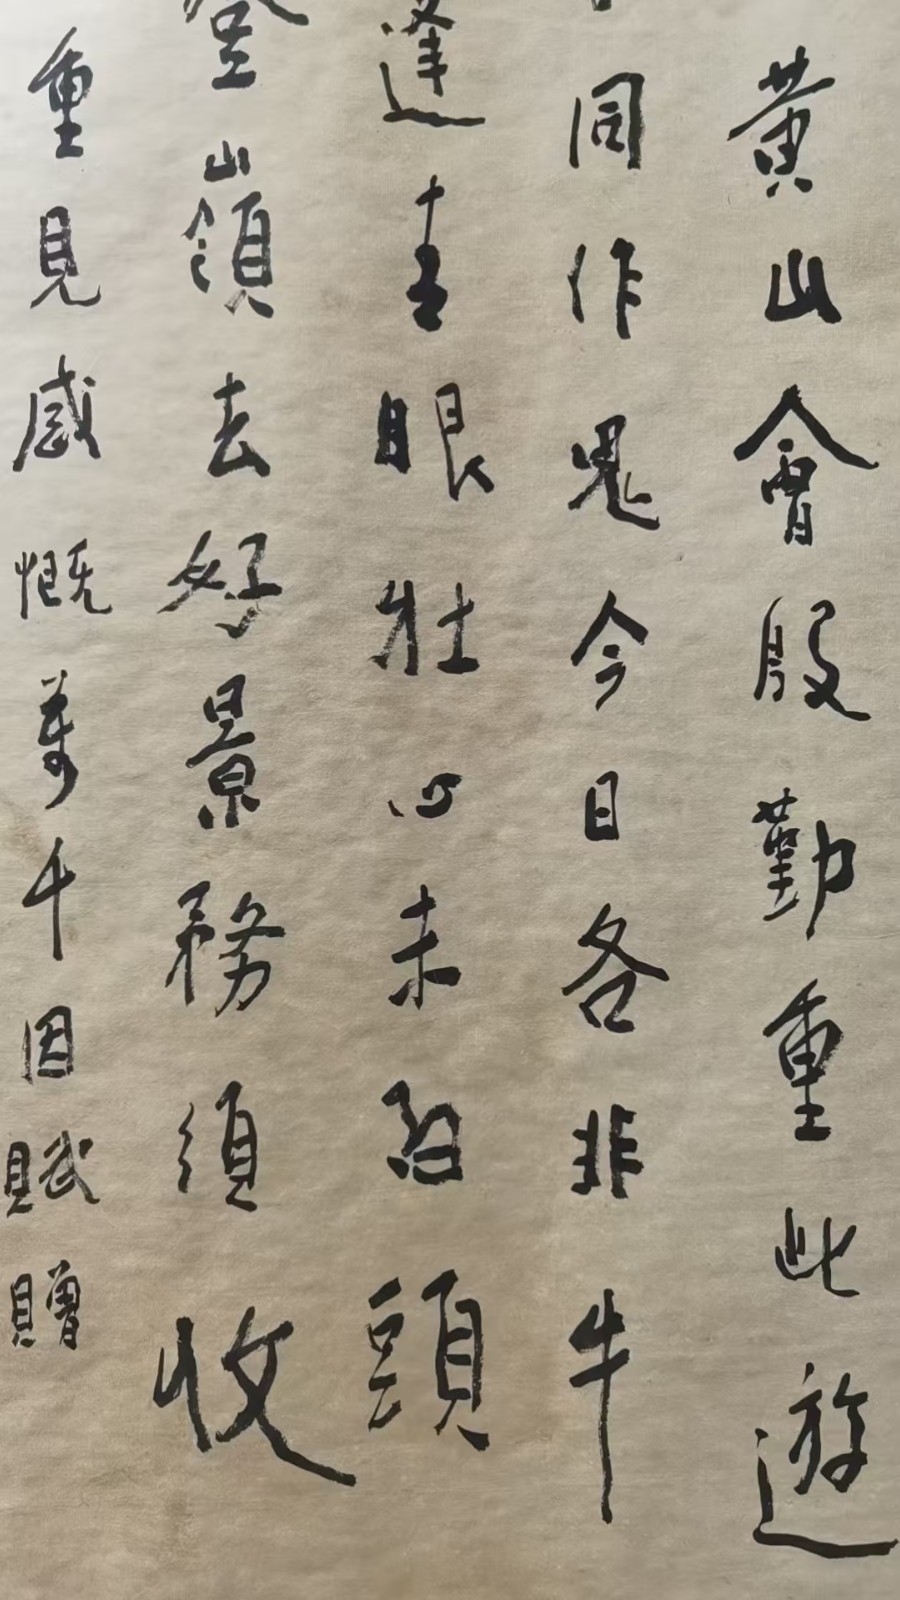 黃山會殷勤重此遊
同作鬼今日各非牛
逢青眼壯心未頭
登嶺去好景務須收
重見感慨萬千因賦贈